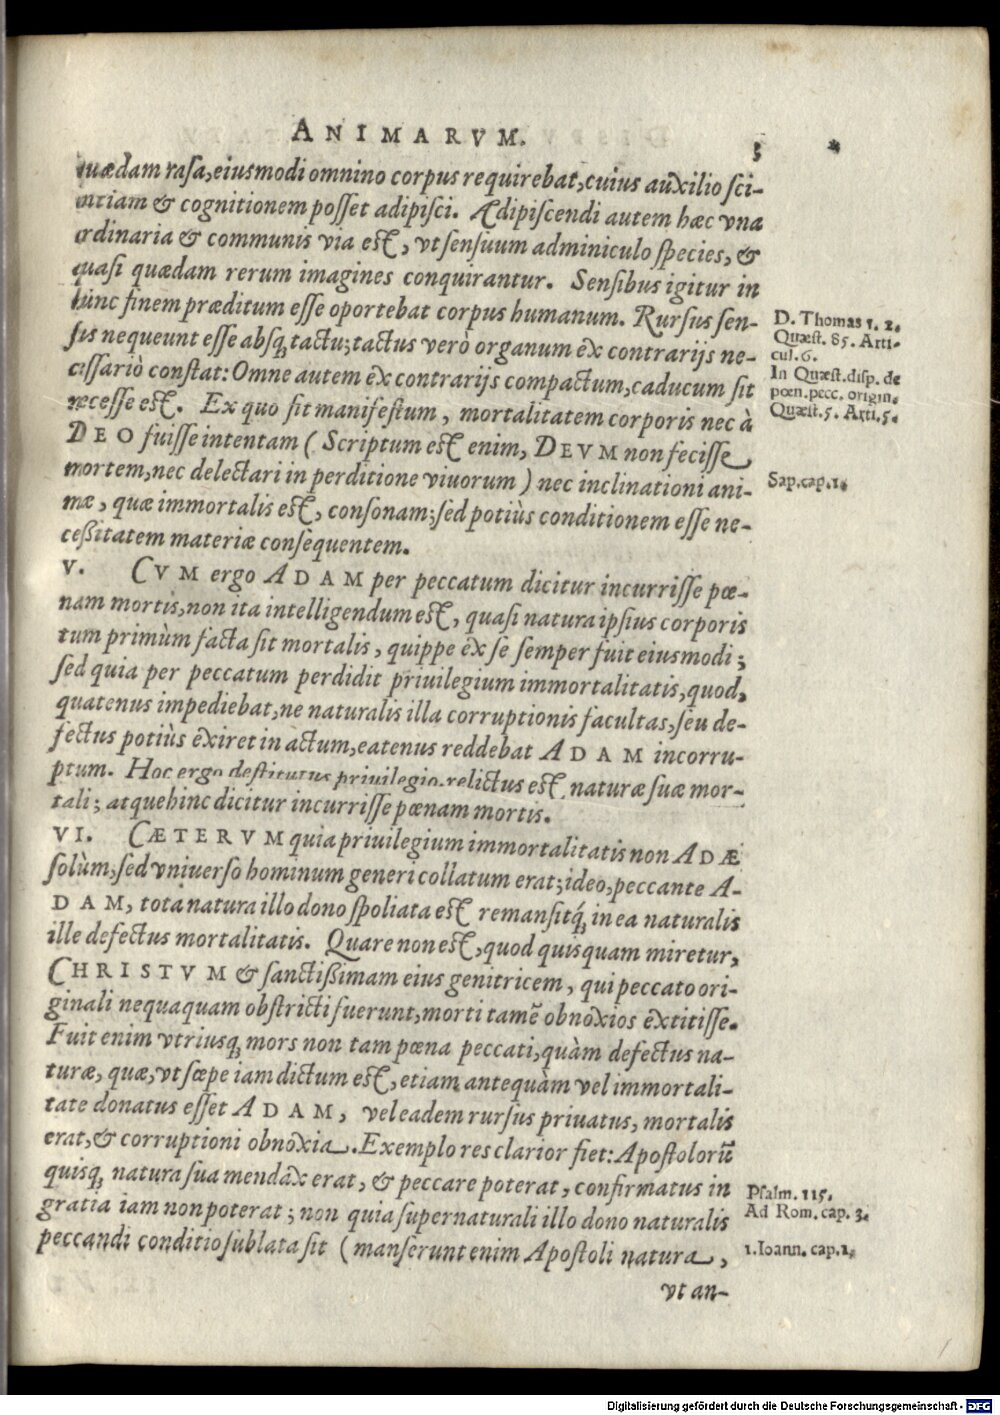 ANIMARVM. 5 *
quædam rasa, eiusmodi omnino corpus requirebat, cuius auxilio sci-
entiam & cognitionem posset adipisci. Ædipiscendi autem hæc vna
ordinaria & communis via est, vt sensuum adminiculo species, &
quasi quædam rerum imagines conquirantur. Sensibus igitur in
hunc finem præditum esse oportebat corpus humanum. Rursus sen-
sus nequeunt esse absq; tactu; tactus verò organum ex contrarijs ne-
cessariò constat: Omne autem ex contrarijs compactum, caducum sit
necesse est. Ex quo fit manifestum, mortalitatem corporis nec à
DEO fuisse intentam (Scriptum est enim, DEVM non fecisse
mortem, nec delectari in perditione viuorum) nec inclinationi ani-
mæ, quæ immortalis est, consonam; sed potiùs conditionem esse ne-
ceßitatem materiæ consequentem.
D. Thomas 1. 2.
Quæst. 85. Arti-
cul. 6.
In Quæst. disp. de
pœn. pecc. origin.
Quæst. 5. Arti. 5.
Sap. cap. 1.
V. CVM ergo ADAM per peccatum dicitur incurrisse pœ-
nam mortis, non ita intelligendum est, quasi natura ipsius corporis
tum primùm facta sit mortalis, quippe ex se semper fuit eiusmodi;
sed quia per peccatum perdidit priuilegium immortalitatis, quod,
quatenus impediebat, ne naturalis illa corruptionis facultas, seu de-
fectus potiùs exiret in actum, eatenus reddebat ADAM incorru-
ptum. Hoc ergo destitutus priuilegio, relictus est naturæ suæ mor-
tali; atque hinc dicitur incurrisse pœnam mortis.
VI. CÆTERVM quia priuilegium immortalitatis non ADÆ
solùm, sed vniuerso hominum generi collatum erat; ideo, peccante A-
DAM, tota natura illo dono spoliata est remansitq́; in ea naturalis
ille defectus mortalitatis. Quare non est, quod quisquam miretur,
CHRISTVM & sanctißimam eius genitricem, qui peccato ori-
ginali nequaquam obstricti fuerunt, morti tamẽ obnoxios extitisse.
Fuit enim vtriusq; mors non tam pœna peccati, quàm defectus na-
turæ, quæ, vt sæpe iam dictum est, etiam antequàm vel immortali-
tate donatus esset ADAM, vel eadem rursus priuatus, mortalis
erat, & corruptioni obnoxia. Exemplo res clarior fiet: Apostolorũ
quisq; natura sua mendax erat, & peccare poterat, confirmatus in
gratia iam non poterat; non quia supernaturali illo dono naturalis
peccandi conditio sublata sit (manserunt enim Apostoli natura,
Psalm. 115.
Ad Rom. cap. 3.
1. Ioann. cap. 1.
vt an-
Digitalisierung gefördert durch die Deutsche Forschungsgemeinschaft - DFG